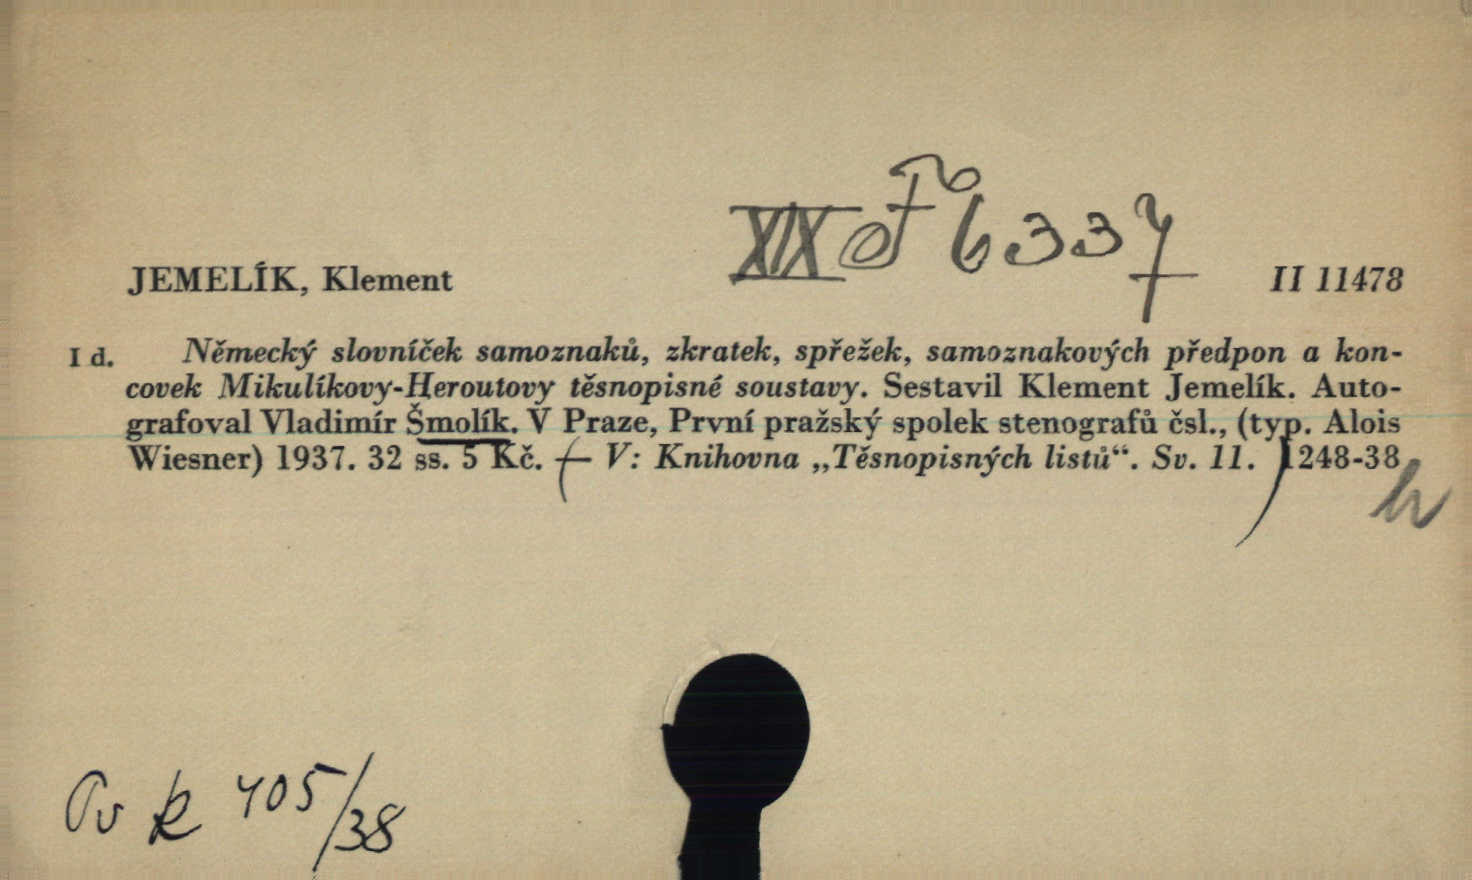 XIX F 6337
JEMELÍK, Klement II 11478
I d. Německý slovníček samoznaků, zkratek, spřežek, samoznakových předpon a kon-
covek Mikulíkovy-Heroutovy těsnopisné soustavy. Sestavil Klement Jemelík. Auto-
grafoval Vladimír Šmolík. V Praze, První pražský spolek stenografů čsl., (typ. Alois
Wiesner) 1937. 32 ss. 5 Kč. (— V: Knihovna „Těsnopisných listů“. Sv. 11.) 1248-38
Ov k 405/38